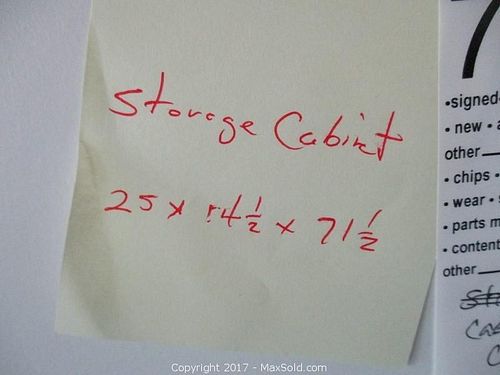 Storage Cabinet
25 x 14 1/2 x 71 1/2
7
•signed
• new •
other
• chips •
• wear •
• parts
• content
other
Copyright 2017 - MaxSold.com